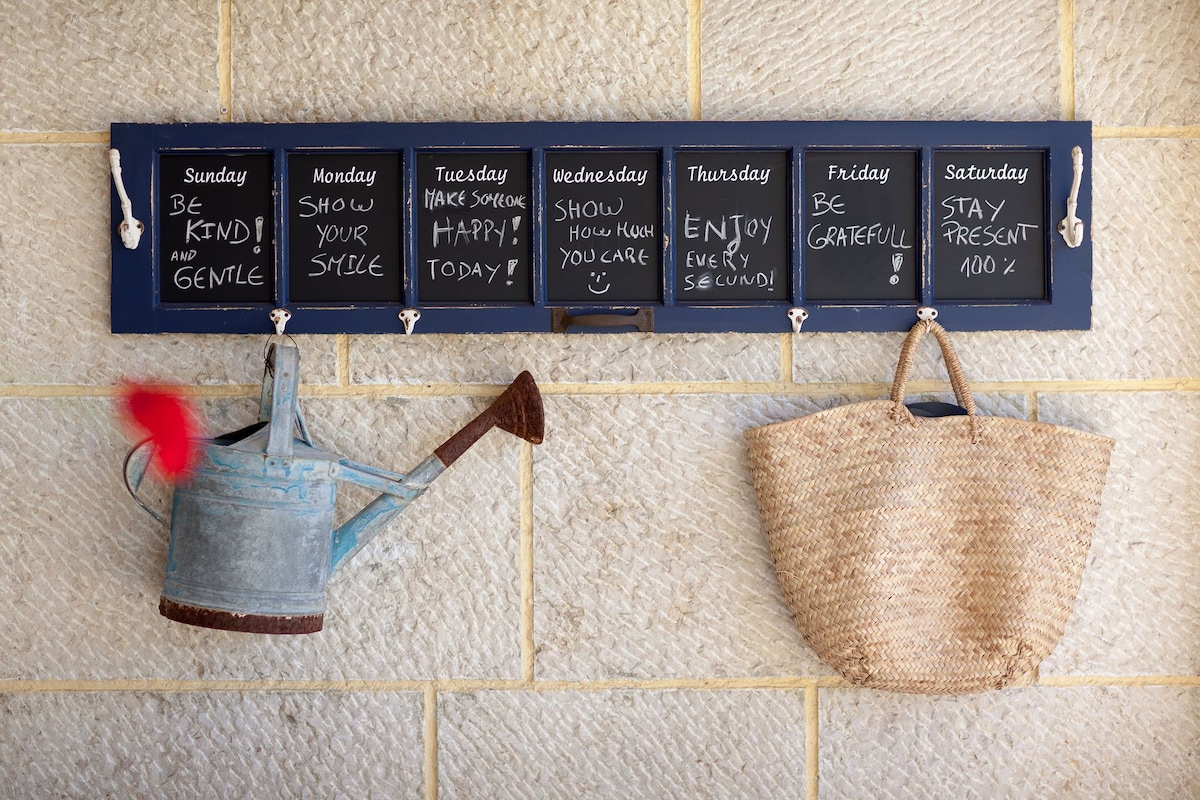 Sunday
BE
KIND!
AND
GENTLE
Monday
SHOW
YOUR
SMILE
Tuesday
MAKE SOMEONE
HAPPY!
TODAY!
Wednesday
SHOW
HOW MUCH
YOU CARE
Thursday
ENJOY
EVERY
SECUND!
Friday
BE
GRATEFULL
!
Saturday
STAY
PRESENT
100%